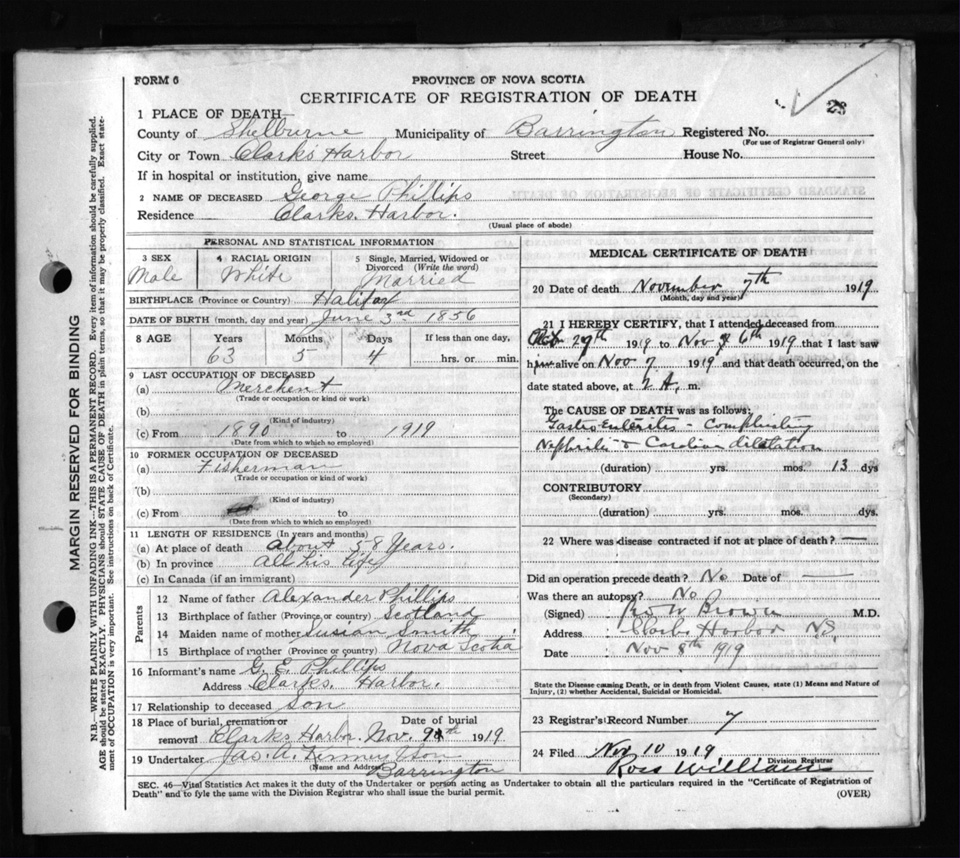 FORM 6
PROVINCE OF NOVA SCOTIA
CERTIFICATE OF REGISTRATION OF DEATH
28
1 PLACE OF DEATH
County of Shelburne Municipality of Barrington Registered No.
(For use of Registrar General only)
City or Town Clark's Harbor Street House No.
If in hospital or institution, give name
2 NAME OF DECEASED George Phillips
Residence Clarks. Harbor.
(Usual place of abode)
PERSONAL AND STATISTICAL INFORMATION
3 SEX Male
4 RACIAL ORIGIN White
5 Single, Married, Widowed or Divorced (Write the word) Married
BIRTHPLACE (Province or Country) Halifax
DATE OF BIRTH (month, day and year) June 3rd 1856
8 AGE Years Months Days If less than one day,
63 5 4 hrs. or min.
9 LAST OCCUPATION OF DECEASED
(a) Merchent
(Trade or occupation or kind or work)
(b)
(Kind of industry)
(c) From 1890 to 1919
(Date from which to which so employed)
10 FORMER OCCUPATION OF DECEASED
(a) Fisherman
(Trade or occupation or kind of work)
(b)
(Kind of industry)
(c) From to
(Date from which to which so employed)
11 LENGTH OF RESIDENCE (In years and months)
(a) At place of death About 58 Years.
(b) In province All his life
(c) In Canada (if an immigrant)
Parents
12 Name of father Alexander Phillips
13 Birthplace of father (Province or country) Scotland
14 Maiden name of mother Susian Smith
15 Birthplace of mother (Province or country) Nova Scotia
16 Informant's name G. E. Phillips
Address Clarks. Harbor.
17 Relationship to deceased Son
18 Place of burial, cremation or removal Clarks Harbor. Date of burial Nov. 9th 1919
19 Undertaker Jas. A. & Son
(Name and Address) Barrington
MEDICAL CERTIFICATE OF DEATH
20 Date of death November 7th 1919
(Month, day and year)
21 I HEREBY CERTIFY, that I attended deceased from
Oct 27th 1919 to Nov 6th 1919 that I last saw
him alive on Nov 7 1919 and that death occurred, on the
date stated above, at 2 A. m.
The CAUSE OF DEATH was as follows:
Gastro Enterites - Complicating
Nephritis & Cardian dilatation
(duration) yrs. mos. 13 dys
CONTRIBUTORY
(Secondary)
(duration) yrs. mos. dys.
22 Where was disease contracted if not at place of death? —
Did an operation precede death? No Date of —
Was there an autopsy? No
(Signed) Brown M.D.
Address Clarks Harbor N.S.
Date Nov 8th 1919
State the Disease causing Death, or in death from Violent Causes, state (1) Means and Nature of Injury, (2) whether Accidental, Suicidal or Homicidal.
23 Registrar's Record Number 7
24 Filed Nov 10 1919
Division Registrar
Ross Williams
SEC. 46—Vital Statistics Act makes it the duty of the Undertaker or person acting as Undertaker to obtain all the particulars required in the "Certificate of Registration of
Death" and to fyle the same with the Division Registrar who shall issue the burial permit.
(OVER)
MARGIN RESERVED FOR BINDING
N.B.—WRITE PLAINLY WITH UNFADING INK—THIS IS A PERMANENT RECORD. Every item of information should be carefully supplied.
AGE should be stated EXACTLY. PHYSICIANS should STATE CAUSE OF DEATH in plain terms, so that it may be properly classified. Exact statement of OCCUPATION is very important. See instructions on back of Certificate.